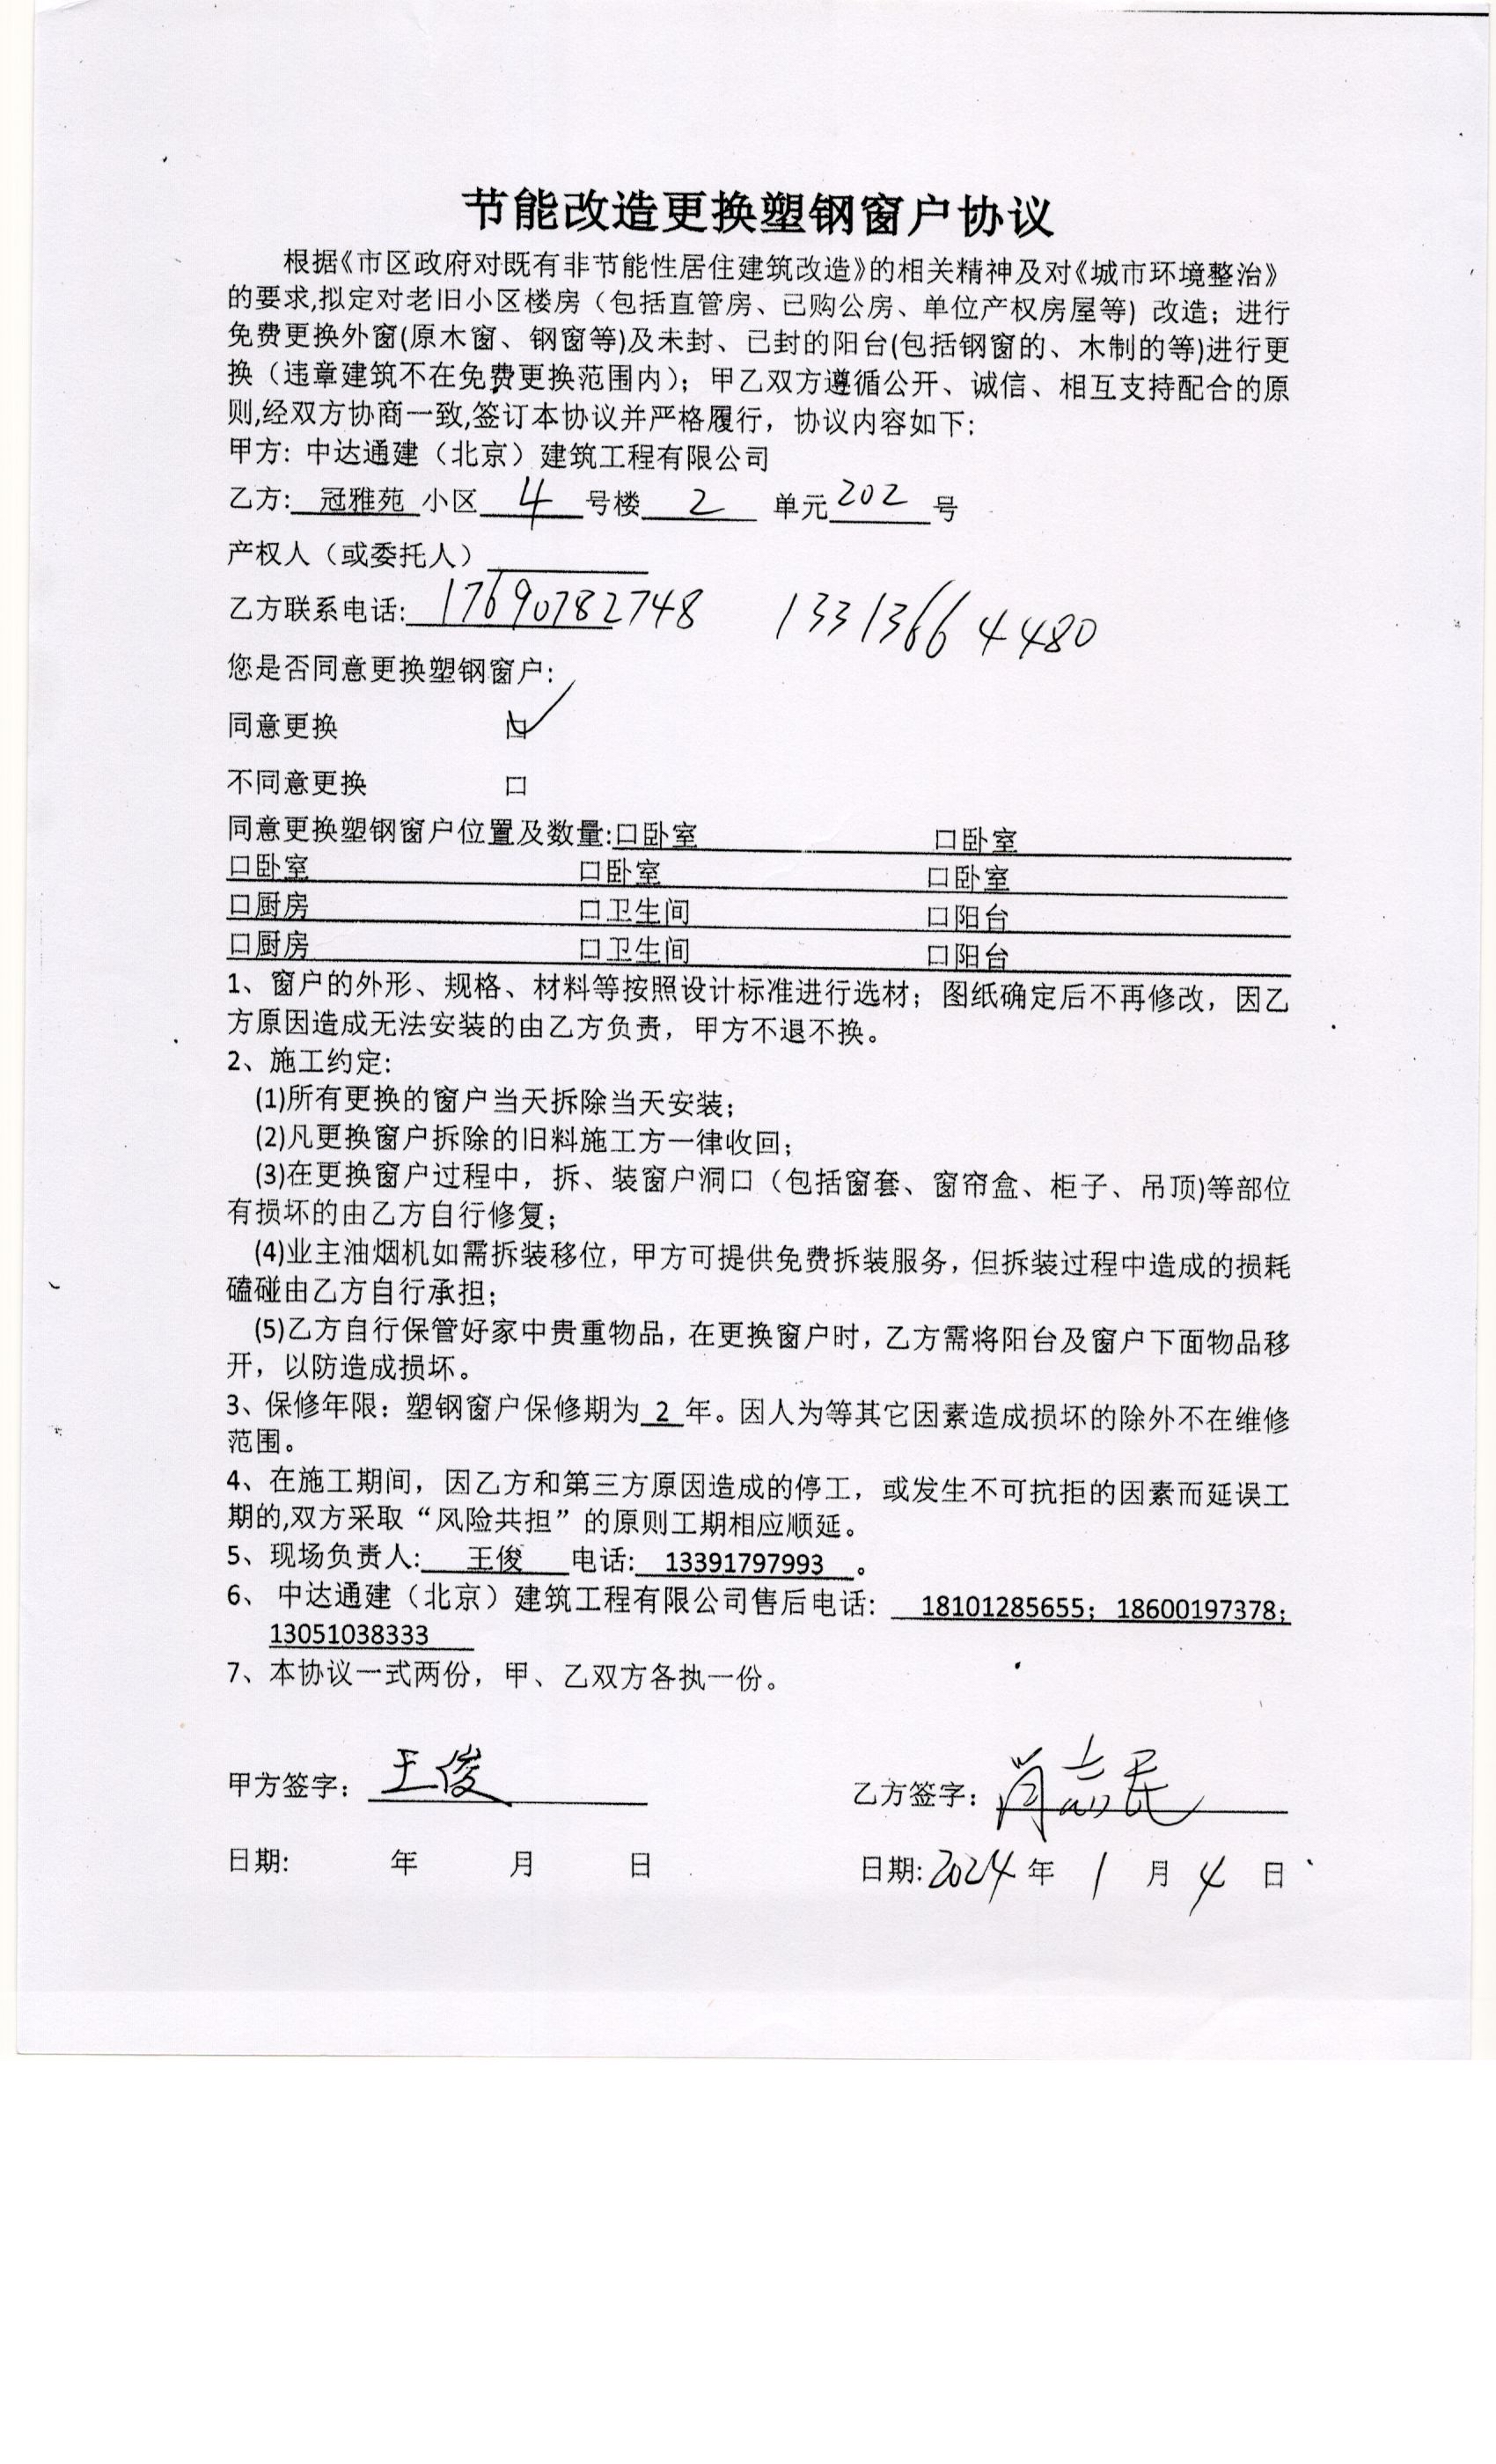 节能改造更换塑钢窗户协议
根据《市区政府对既有非节能性居住建筑改造》的相关精神及对《城市环境整治》
的要求,拟定对老旧小区楼房（包括直管房、已购公房、单位产权房屋等）改造；进行
免费更换外窗(原木窗、钢窗等)及未封、已封的阳台(包括钢窗的、木制的等)进行更
换（违章建筑不在免费更换范围内）；甲乙双方遵循公开、诚信、相互支持配合的原
则,经双方协商一致,签订本协议并严格履行，协议内容如下：
甲方：中达通建（北京）建筑工程有限公司
乙方: 冠雅苑 小区 4 号楼 2 单元 202 号
产权人（或委托人）
乙方联系电话: 17690782748 13313664480
您是否同意更换塑钢窗户：
同意更换 ☑
不同意更换 口
同意更换塑钢窗户位置及数量:口卧室 口卧室
口卧室 口卧室 口卧室
口厨房 口卫生间 口阳台
口厨房 口卫生间 口阳台
1、窗户的外形、规格、材料等按照设计标准进行选材；图纸确定后不再修改，因乙
方原因造成无法安装的由乙方负责，甲方不退不换。
2、施工约定：
(1)所有更换的窗户当天拆除当天安装；
(2)凡更换窗户拆除的旧料施工方一律收回；
(3)在更换窗户过程中，拆、装窗户洞口（包括窗套、窗帘盒、柜子、吊顶)等部位
有损坏的由乙方自行修复；
(4)业主油烟机如需拆装移位，甲方可提供免费拆装服务，但拆装过程中造成的损耗
磕碰由乙方自行承担；
(5)乙方自行保管好家中贵重物品，在更换窗户时，乙方需将阳台及窗户下面物品移
开，以防造成损坏。
3、保修年限：塑钢窗户保修期为 2 年。因人为等其它因素造成损坏的除外不在维修
范围。
4、在施工期间，因乙方和第三方原因造成的停工，或发生不可抗拒的因素而延误工
期的,双方采取“风险共担”的原则工期相应顺延。
5、现场负责人: 王俊 电话: 13391797993 。
6、中达通建（北京）建筑工程有限公司售后电话: 18101285655；18600197378；
13051038333
7、本协议一式两份，甲、乙双方各执一份。
甲方签字：王俊 乙方签字：肖志民
日期: 年 月 日 日期:2024年 1 月 4 日